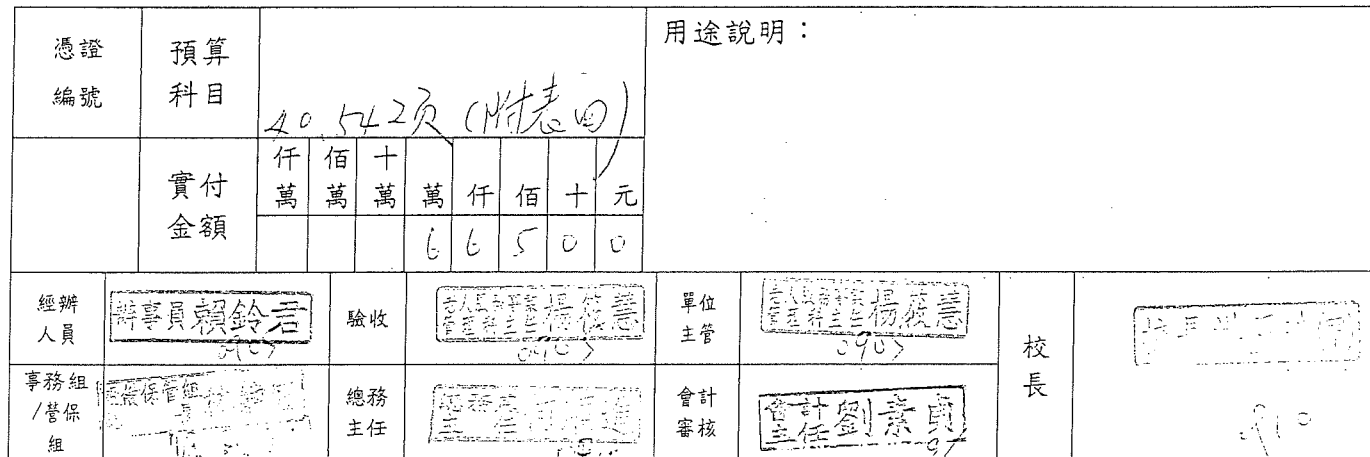 憑證
編號
預算
科目
40.542頁(附表四)
用途說明：
實付
金額
仟萬 佰萬 十萬 萬 仟 佰 十 元
6 6 5 0 0
經辦
人員
辦事員賴鈴君
0903
驗收
楊筱慧
0903
單位
主管
楊筱慧
0903
校長
事務組
/營保
組
總務
主任
會計
審核
會計
主任劉素貞